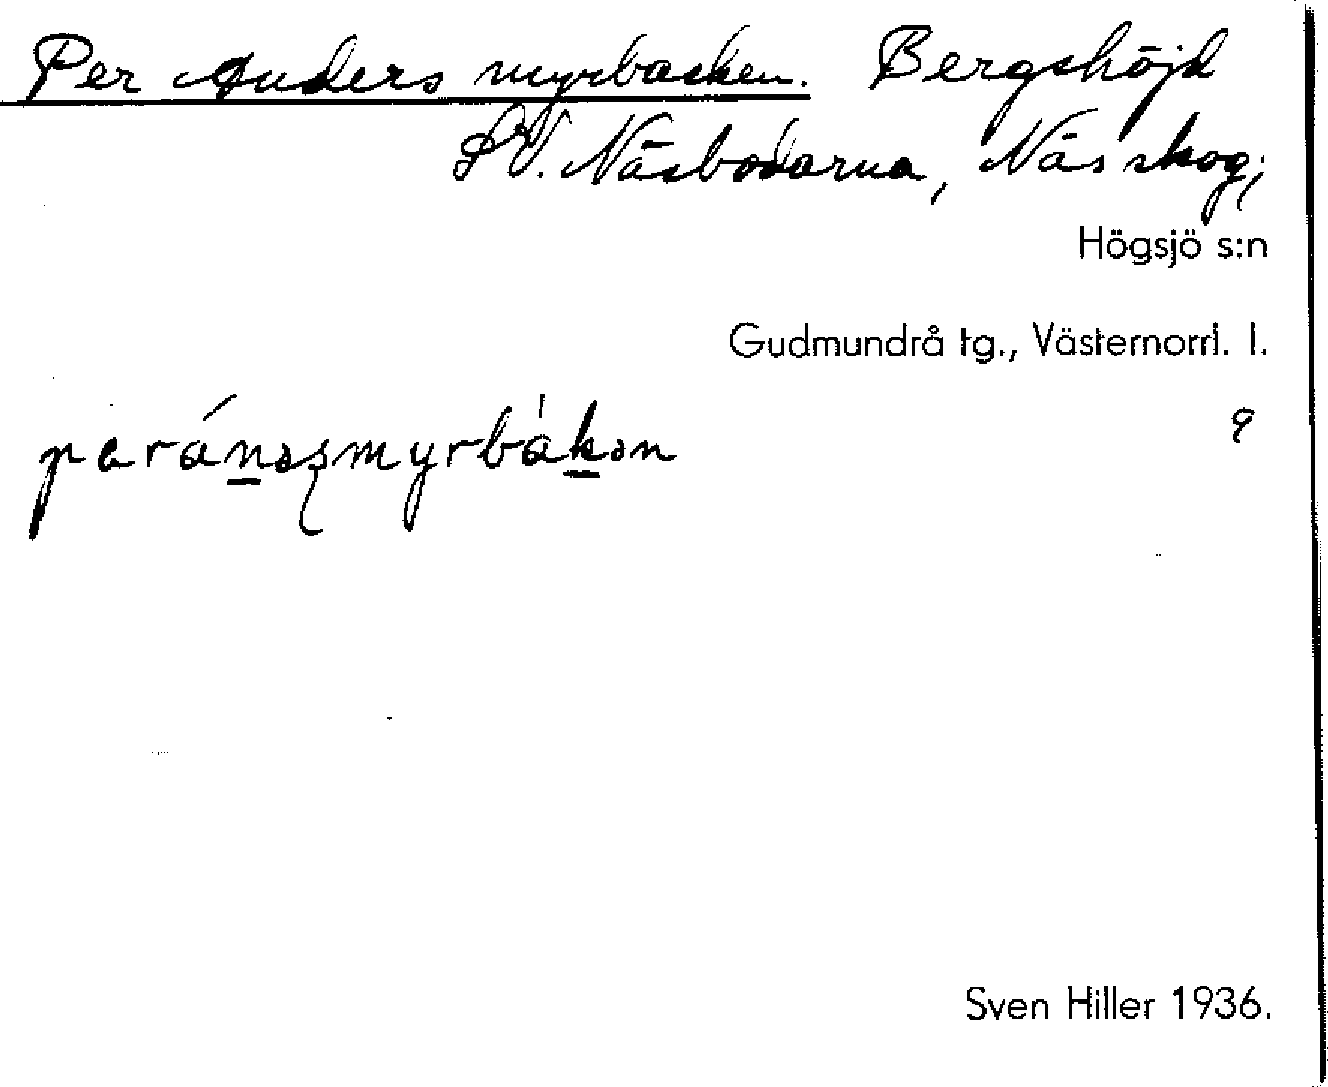 Per Anders myrbacken. Bergshöjd
SV. Näsbodarna, Näs skog,
Högsjö s:n
Gudmundrå tg., Västernorrl. l.
9
Sven Hiller 1936.